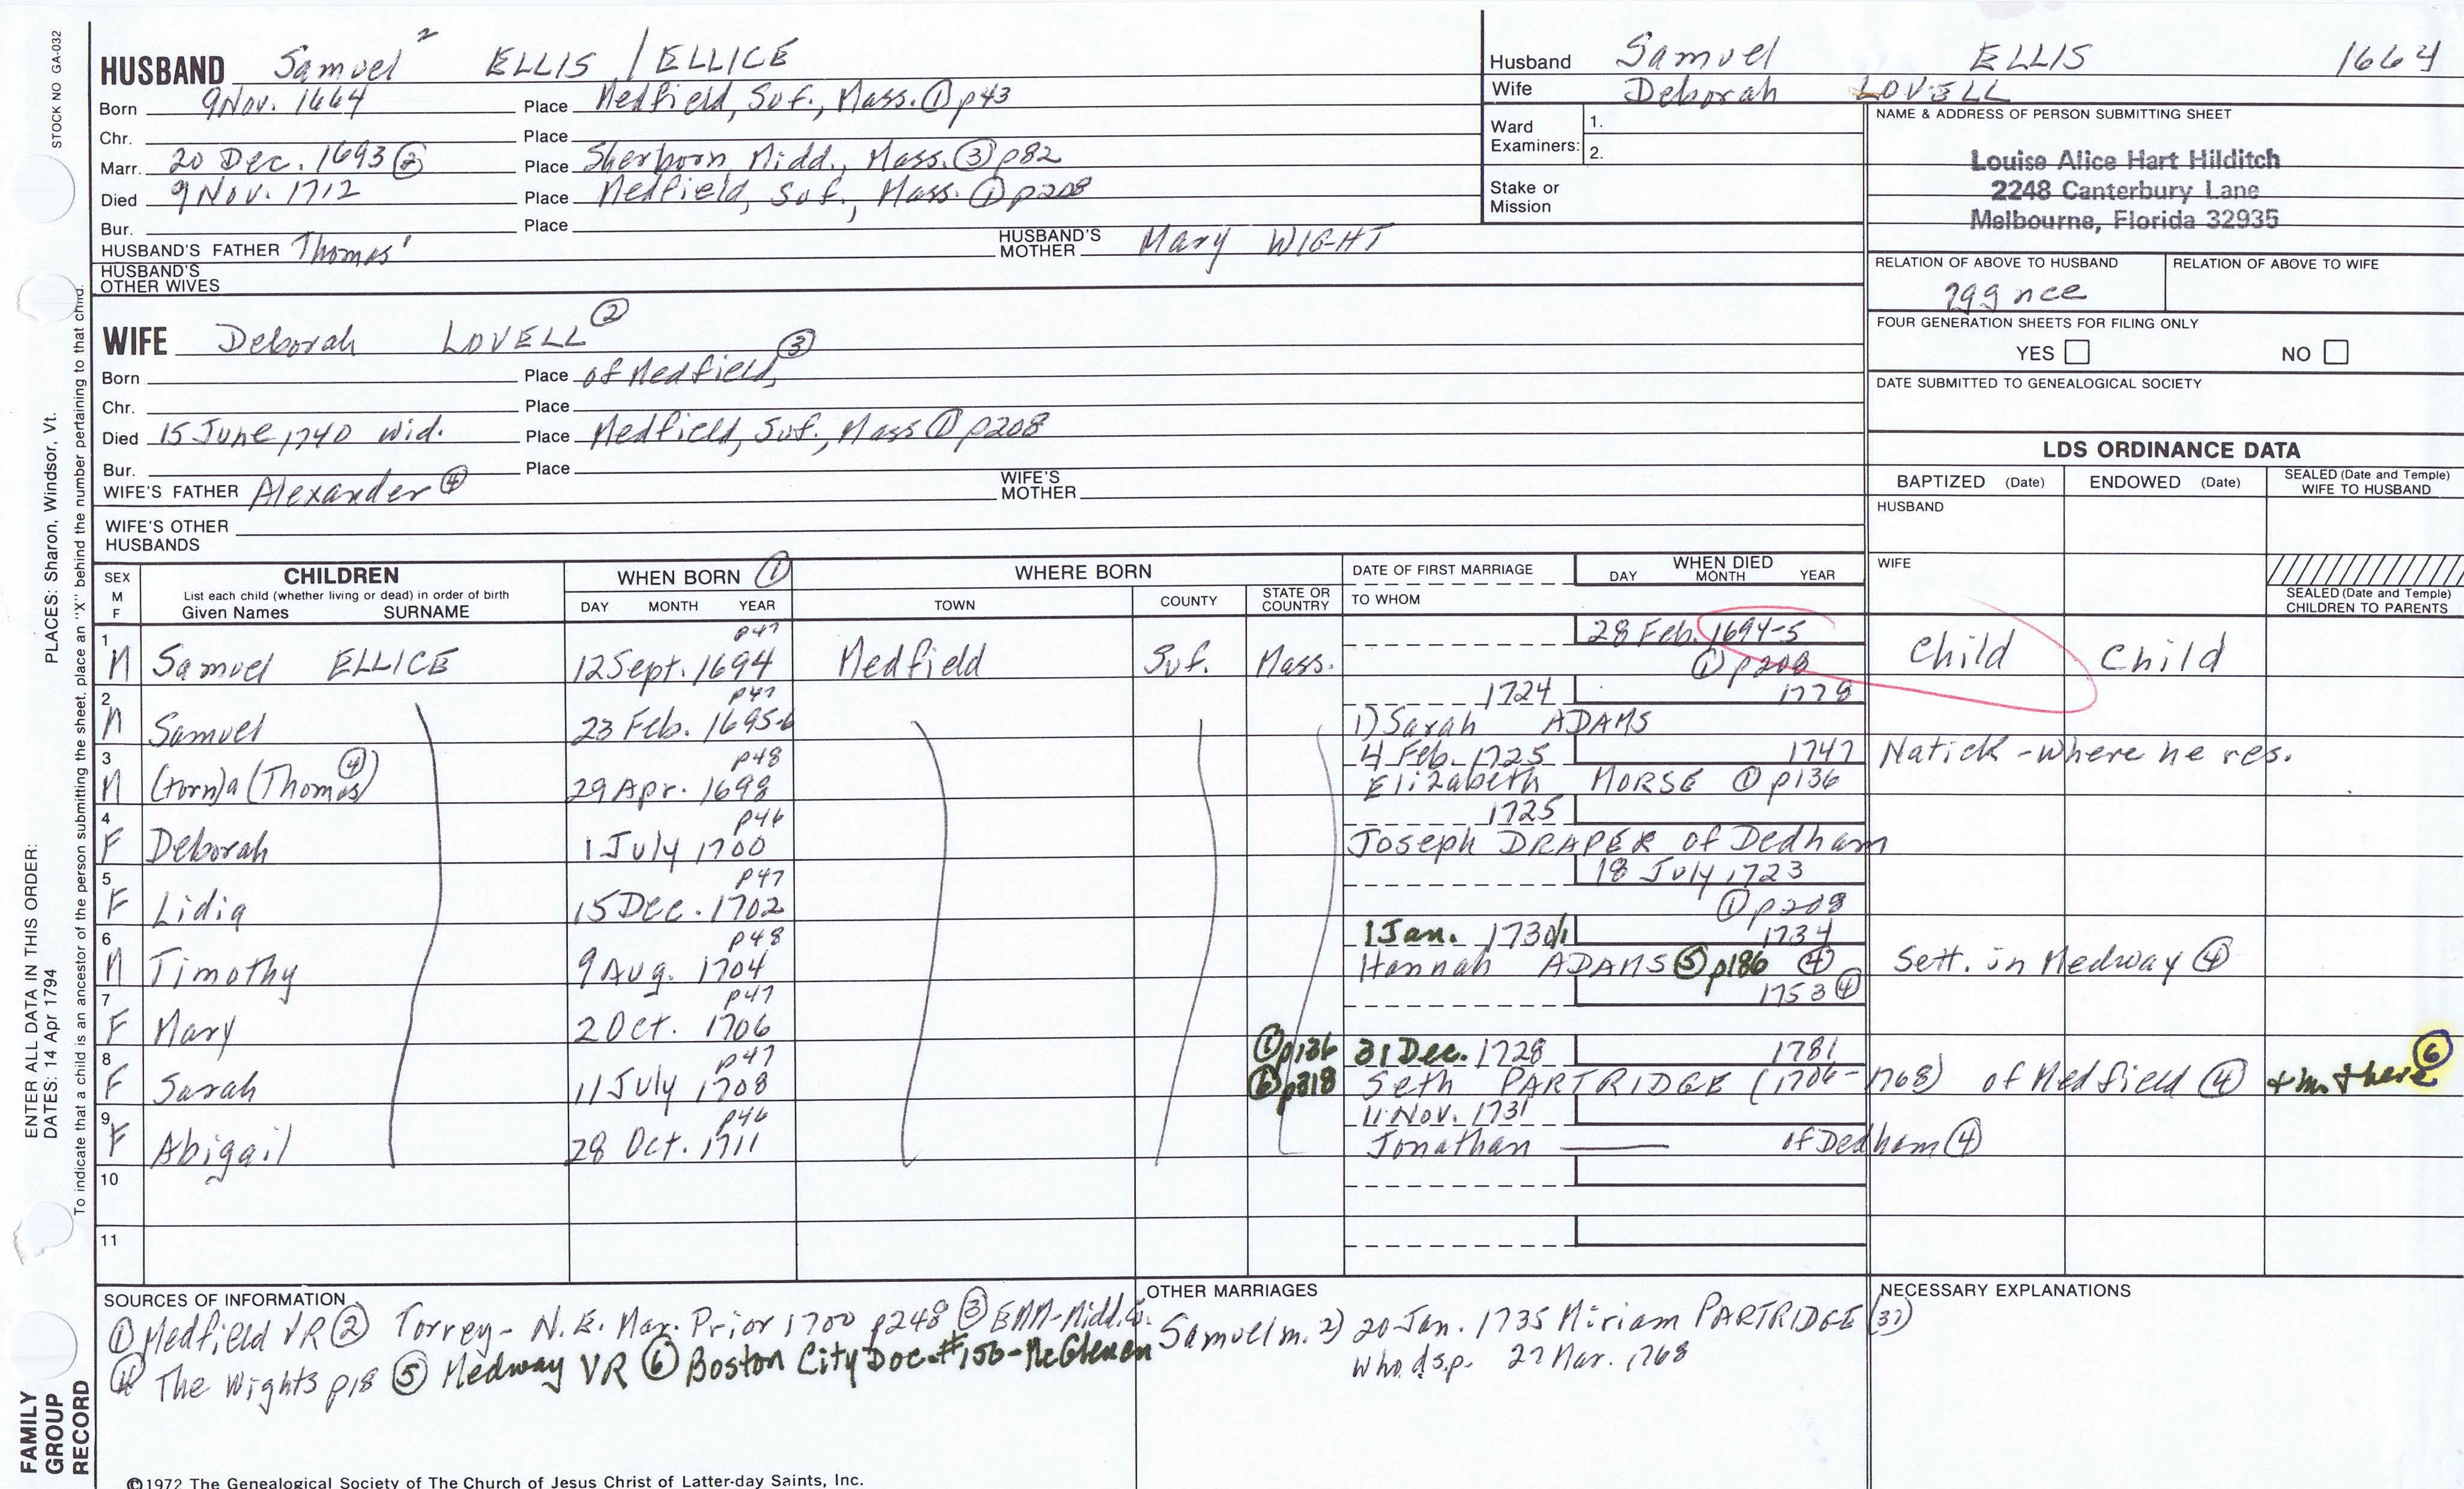 HUSBAND Samuel 2 ELLIS / ELLICE
Born 9 Nov. 1664 Place Medfield, Suf., Mass. ① p43
Chr. Place
Marr. 20 Dec. 1693 ② Place Sherborn, Midd., Mass. ③ p82
Died 9 Nov. 1712 Place Medfield, Suf., Mass. ① p208
Bur. Place
HUSBAND'S FATHER Thomas 1 HUSBAND'S MOTHER Mary WIGHT
HUSBAND'S OTHER WIVES
WIFE Deborah LOVELL ②
Born Place of Medfield, ③
Chr. Place
Died 15 June, 1740 wid. Place Medfield, Suf., Mass ① p208
Bur. Place
WIFE'S FATHER Alexander ④ WIFE'S MOTHER
WIFE'S OTHER HUSBANDS
Husband Samuel ELLIS 1664
Wife Deborah LOVELL
Ward Examiners: 1.
2.
Stake or Mission
NAME & ADDRESS OF PERSON SUBMITTING SHEET
Louise Alice Hart Hilditch
2248 Canterbury Lane
Melbourne, Florida 32935
RELATION OF ABOVE TO HUSBAND RELATION OF ABOVE TO WIFE
7gg nce
FOUR GENERATION SHEETS FOR FILING ONLY
YES NO
DATE SUBMITTED TO GENEALOGICAL SOCIETY
LDS ORDINANCE DATA
BAPTIZED (Date) ENDOWED (Date) SEALED (Date and Temple) WIFE TO HUSBAND
HUSBAND
WIFE
SEALED (Date and Temple) CHILDREN TO PARENTS
SEX M F CHILDREN WHEN BORN ① WHERE BORN DATE OF FIRST MARRIAGE WHEN DIED
List each child (whether living or dead) in order of birth
Given Names SURNAME DAY MONTH YEAR TOWN COUNTY STATE OR COUNTRY TO WHOM DAY MONTH YEAR
1 p47 28 Feb. 1694-5
M Samuel ELLICE 12 Sept. 1694 Medfield Suf. Mass. ① p208 Child Child
2 p47 1724 1778
M Samuel 23 Feb. 1695-6 1) Sarah ADAMS
3 p48 4 Feb. 1725 1747 Natick - where he res.
M (torn)a (Thomas) ④ 29 Apr. 1698 Elizabeth MORSE ① p136
4 p46 1725
F Deborah 1 July 1700 Joseph DRAPER of Dedham
5 p47 18 July, 1723
F Lidia 15 Dec. 1702 ① p208
6 p48 1 Jan. 1730/1 1734
M Timothy 9 Aug. 1704 Hannah ADAMS ⑤ p186 ④ Sett. in Medway ④
7 p47 1753 ④
F Mary 2 Oct. 1706
8 p47 ① p136 31 Dec. 1728 1781
F Sarah 11 July 1708 ⑥ p318 Seth PARTRIDGE (1706-1768) of Medfield ④ + m. there ⑥
9 p46 11 Nov. 1731
F Abigail 28 Oct. 1711 Jonathan —— of Dedham ④
10
11
SOURCES OF INFORMATION
① Medfield VR ② Torrey - N.E. Mar. Prior 1700 p248 ③ EMM-Midd. Co.
④ The Wights p18 ⑤ Medway VR ⑥ Boston City Doc. #150 - McGlenen
OTHER MARRIAGES
Samuel m. 2) 20 Jan. 1735 Miriam PARTRIDGE (37)
who dsp. 27 Mar. 1768
NECESSARY EXPLANATIONS
©1972 The Genealogical Society of The Church of Jesus Christ of Latter-day Saints, Inc.
STOCK NO GA-032
PLACES: Sharon, Windsor, Vt.
ENTER ALL DATA IN THIS ORDER:
DATES: 14 Apr 1794
To indicate that a child is an ancestor of the person submitting the sheet, place an "X" behind the number pertaining to that child.
FAMILY GROUP RECORD